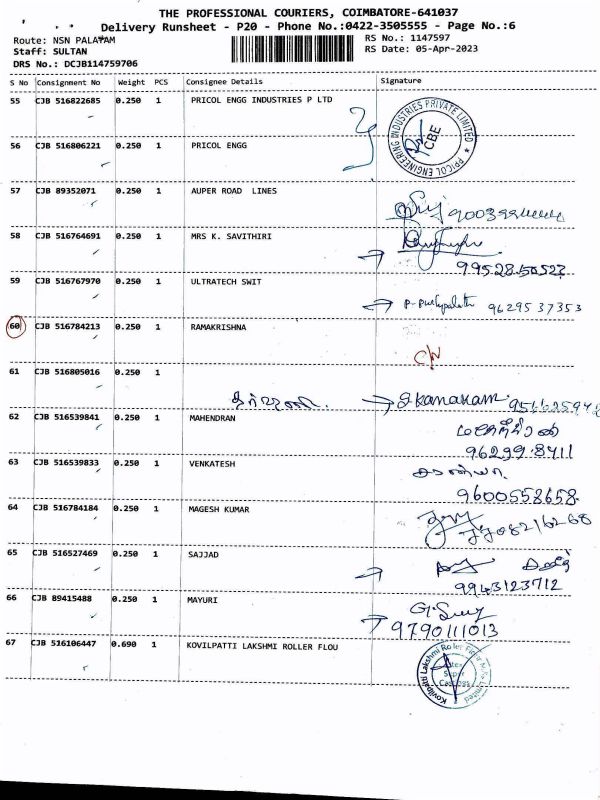 THE PROFESSIONAL COURIERS, COIMBATORE-641037
Delivery Runsheet - P20 - Phone No.:0422-3505555 - Page No.:6
Route: NSN PALAYAM RS No.: 1147597
Staff: SULTAN RS Date: 05-Apr-2023
DRS No.: DCJB114759706
S No Consignment No Weight PCS Consignee Details Signature
55 CJB 516822685 0.250 1 PRICOL ENGG INDUSTRIES P LTD
PRICOL ENGINEERING INDUSTRIES PRIVATE LIMITED ★ CBE
56 CJB 516806221 0.250 1 PRICOL ENGG
57 CJB 89352071 0.250 1 AUPER ROAD LINES
58 CJB 516764691 0.250 1 MRS K. SAVITHIRI
9952850522
59 CJB 516767970 0.250 1 ULTRATECH SWIT
9629537353
60 CJB 516784213 0.250 1 RAMAKRISHNA
C/N
61 CJB 516805016 0.250 1
S kanakam
62 CJB 516539841 0.250 1 MAHENDRAN
96299 8411
63 CJB 516539833 0.250 1 VENKATESH
9600558658
64 CJB 516784184 0.250 1 MAGESH KUMAR
65 CJB 516527469 0.250 1 SAJJAD
9943123712
66 CJB 89415488 0.250 1 MAYURI
9790111013
67 CJB 516106447 0.690 1 KOVILPATTI LAKSHMI ROLLER FLOU
Kovilpatti Lakshmi Roller Flour Mills Limited